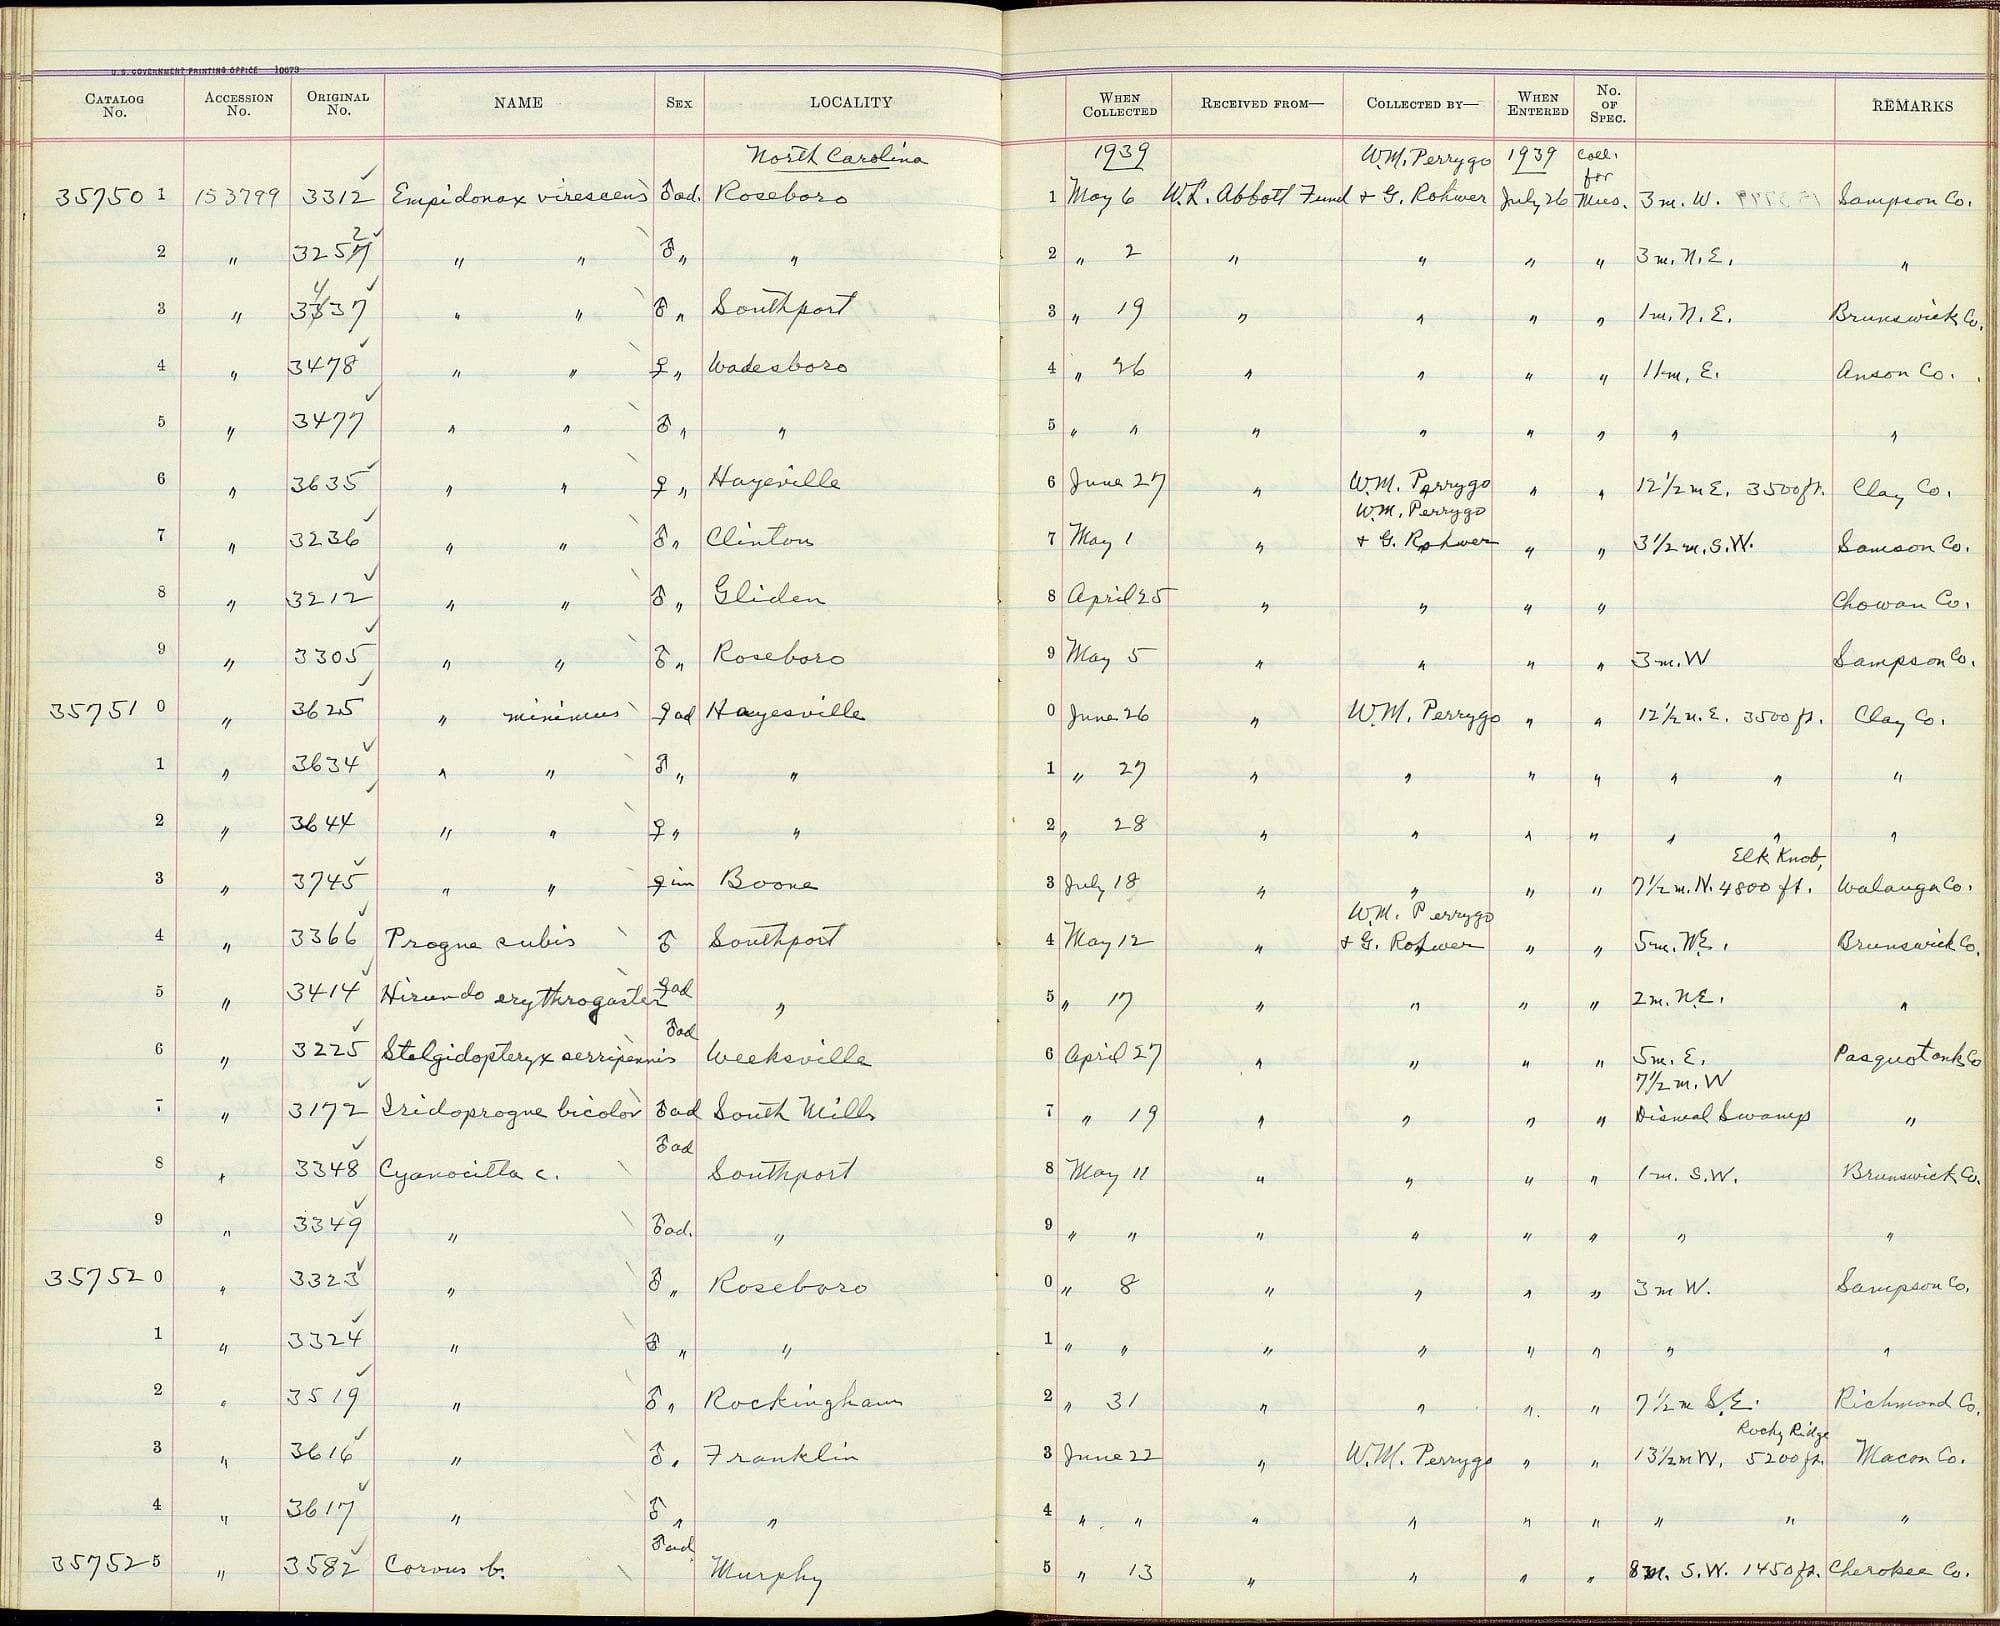 U.S. GOVERNMENT PRINTING OFFICE 10673
CATALOG No. ACCESSION No. ORIGINAL No. NAME SEX LOCALITY WHEN COLLECTED RECEIVED FROM— COLLECTED BY— WHEN ENTERED No. OF SPEC. REMARKS
North Carolina 1939 W.M. Perrygo 1939 Coll. for
35750 1 153799 3312 Empidonax virescens ♂ad. Roseboro 1 May 6 W.L. Abbott Fund + G. Rohwer July 26 Mus. 3 m. W. Sampson Co.
2 " 3252 " " ♂ " " 2 " 2 " " " " 3 m. N.E. "
3 " 3437 " " ♂ " Southport 3 " 19 " " " " 1 m. N.E. Brunswick Co.
4 " 3478 " " ♀ " Wadesboro 4 " 26 " " " " 11 m. E. Anson Co.
5 " 3477 " " ♂ " " 5 " " " " " " " "
6 " 3635 " " ♀ " Hayeville 6 June 27 " W.M. Perrygo " " 12½ m E. 3500 ft. Clay Co.
W.M. Perrygo
7 " 3236 " " ♂ " Clinton 7 May 1 " + G. Rohwer " " 3½ m. S.W. Samson Co.
8 " 3212 " " ♂ " Gliden 8 April 25 " " " " Chowan Co.
9 " 3305 " " ♂ " Roseboro 9 May 5 " " " " 3 m. W Sampson Co.
35751 0 " 3625 " minimus ♀ad Hayesville 0 June 26 " W.M. Perrygo " " 12½ m. E. 3500 ft. Clay Co.
1 " 3634 " " ♂ " " 1 " 27 " " " " " " "
2 " 3644 " " ♀ " " 2 " 28 " " " " " " "
Elk Knob,
3 " 3745 " " ♀im Boone 3 July 18 " " " " 7½ m. N. 4800 ft. Walauga Co.
W.M. Perrygo
4 " 3366 Progne subis ♂ Southport 4 May 12 " + G. Rohwer " " 5 m. N.E. Brunswick Co.
5 " 3414 Hirundo erythrogaster ♀ad " 5 " 17 " " " " 2 m. N.E. "
♂ad
6 " 3225 Stelgidopteryx serripennis Weeksville 6 April 27 " " " " 5 m. E. Pasquotank Co
7½ m. W
7 " 3172 Iridoprogne bicolor ♂ad South Mills 7 " 19 " " " " Dismal Swamp "
♂ad
8 " 3348 Cyanocitta c. Southport 8 May 11 " " " " 1 m. S.W. Brunswick Co.
9 " 3349 " ♂ad. " 9 " " " " " " " "
35752 0 " 3323 " ♂ " Roseboro 0 " 8 " " " " 3 m W. Sampson Co.
1 " 3324 " ♂ " " 1 " " " " " " " "
2 " 3519 " ♂ " Rockingham 2 " 31 " " " " 7½ m S.E. Richmond Co.
Rocky Ridge
3 " 3616 " ♂ " Franklin 3 June 22 " W.M. Perrygo " " 13½ m W. 5200 ft. Macon Co.
4 " 3617 " ♂ " " 4 " " " " " " " " "
♂ad
35752 5 " 3582 Corvus b. Murphy 5 " 13 " " " " 8 m. S.W. 1450 ft. Cherokee Co.